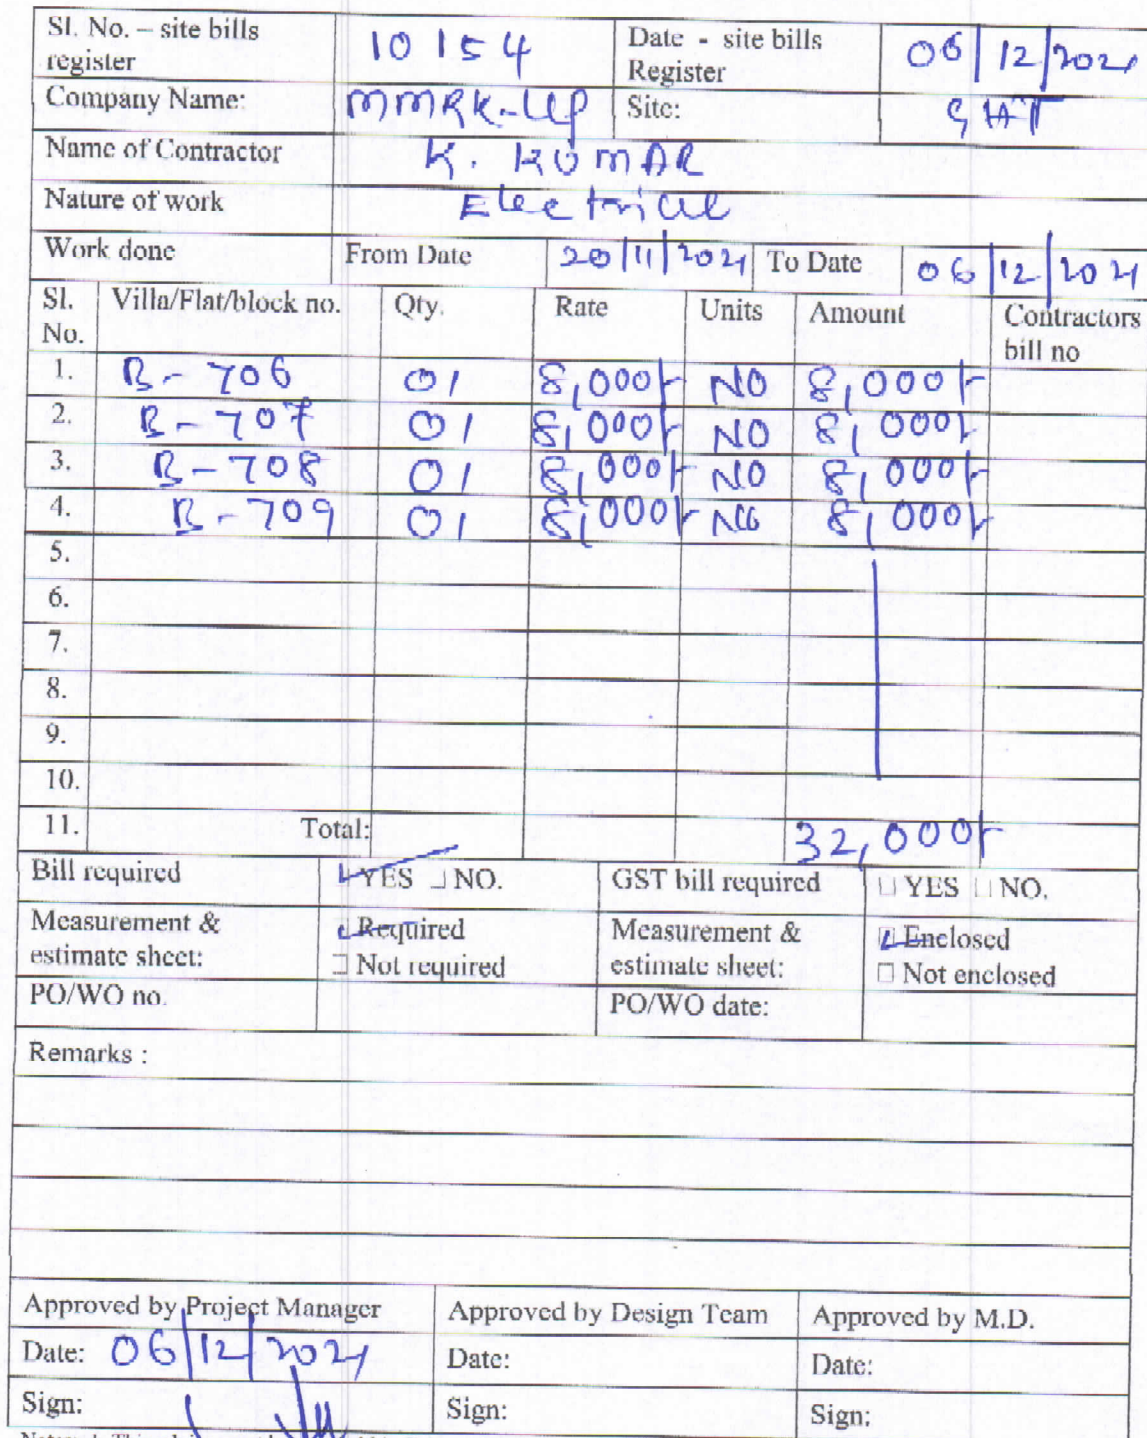 Sl. No. – site bills register 10154 Date - site bills Register 06/12/2021
Company Name: MMRK-LLP Site: GHT
Name of Contractor K. KUMAR
Nature of work Electrical
Work done From Date 20/11/2021 To Date 06/12/2021
Sl. No. Villa/Flat/block no. Qty. Rate Units Amount Contractors bill no
1. B-706 01 8,000/- NO 8,000/-
2. B-707 01 8,000/- NO 8,000/-
3. B-708 01 8,000/- NO 8,000/-
4. B-709 01 8,000/- NO 8,000/-
5.
6.
7.
8.
9.
10.
11. Total: 32,000/-
Bill required YES NO. GST bill required YES NO.
Measurement & estimate sheet: Required Not required Measurement & estimate sheet: Enclosed Not enclosed
PO/WO no. PO/WO date:
Remarks :
Approved by Project Manager Approved by Design Team Approved by M.D.
Date: 06/12/2021 Date: Date:
Sign: Sign: Sign: